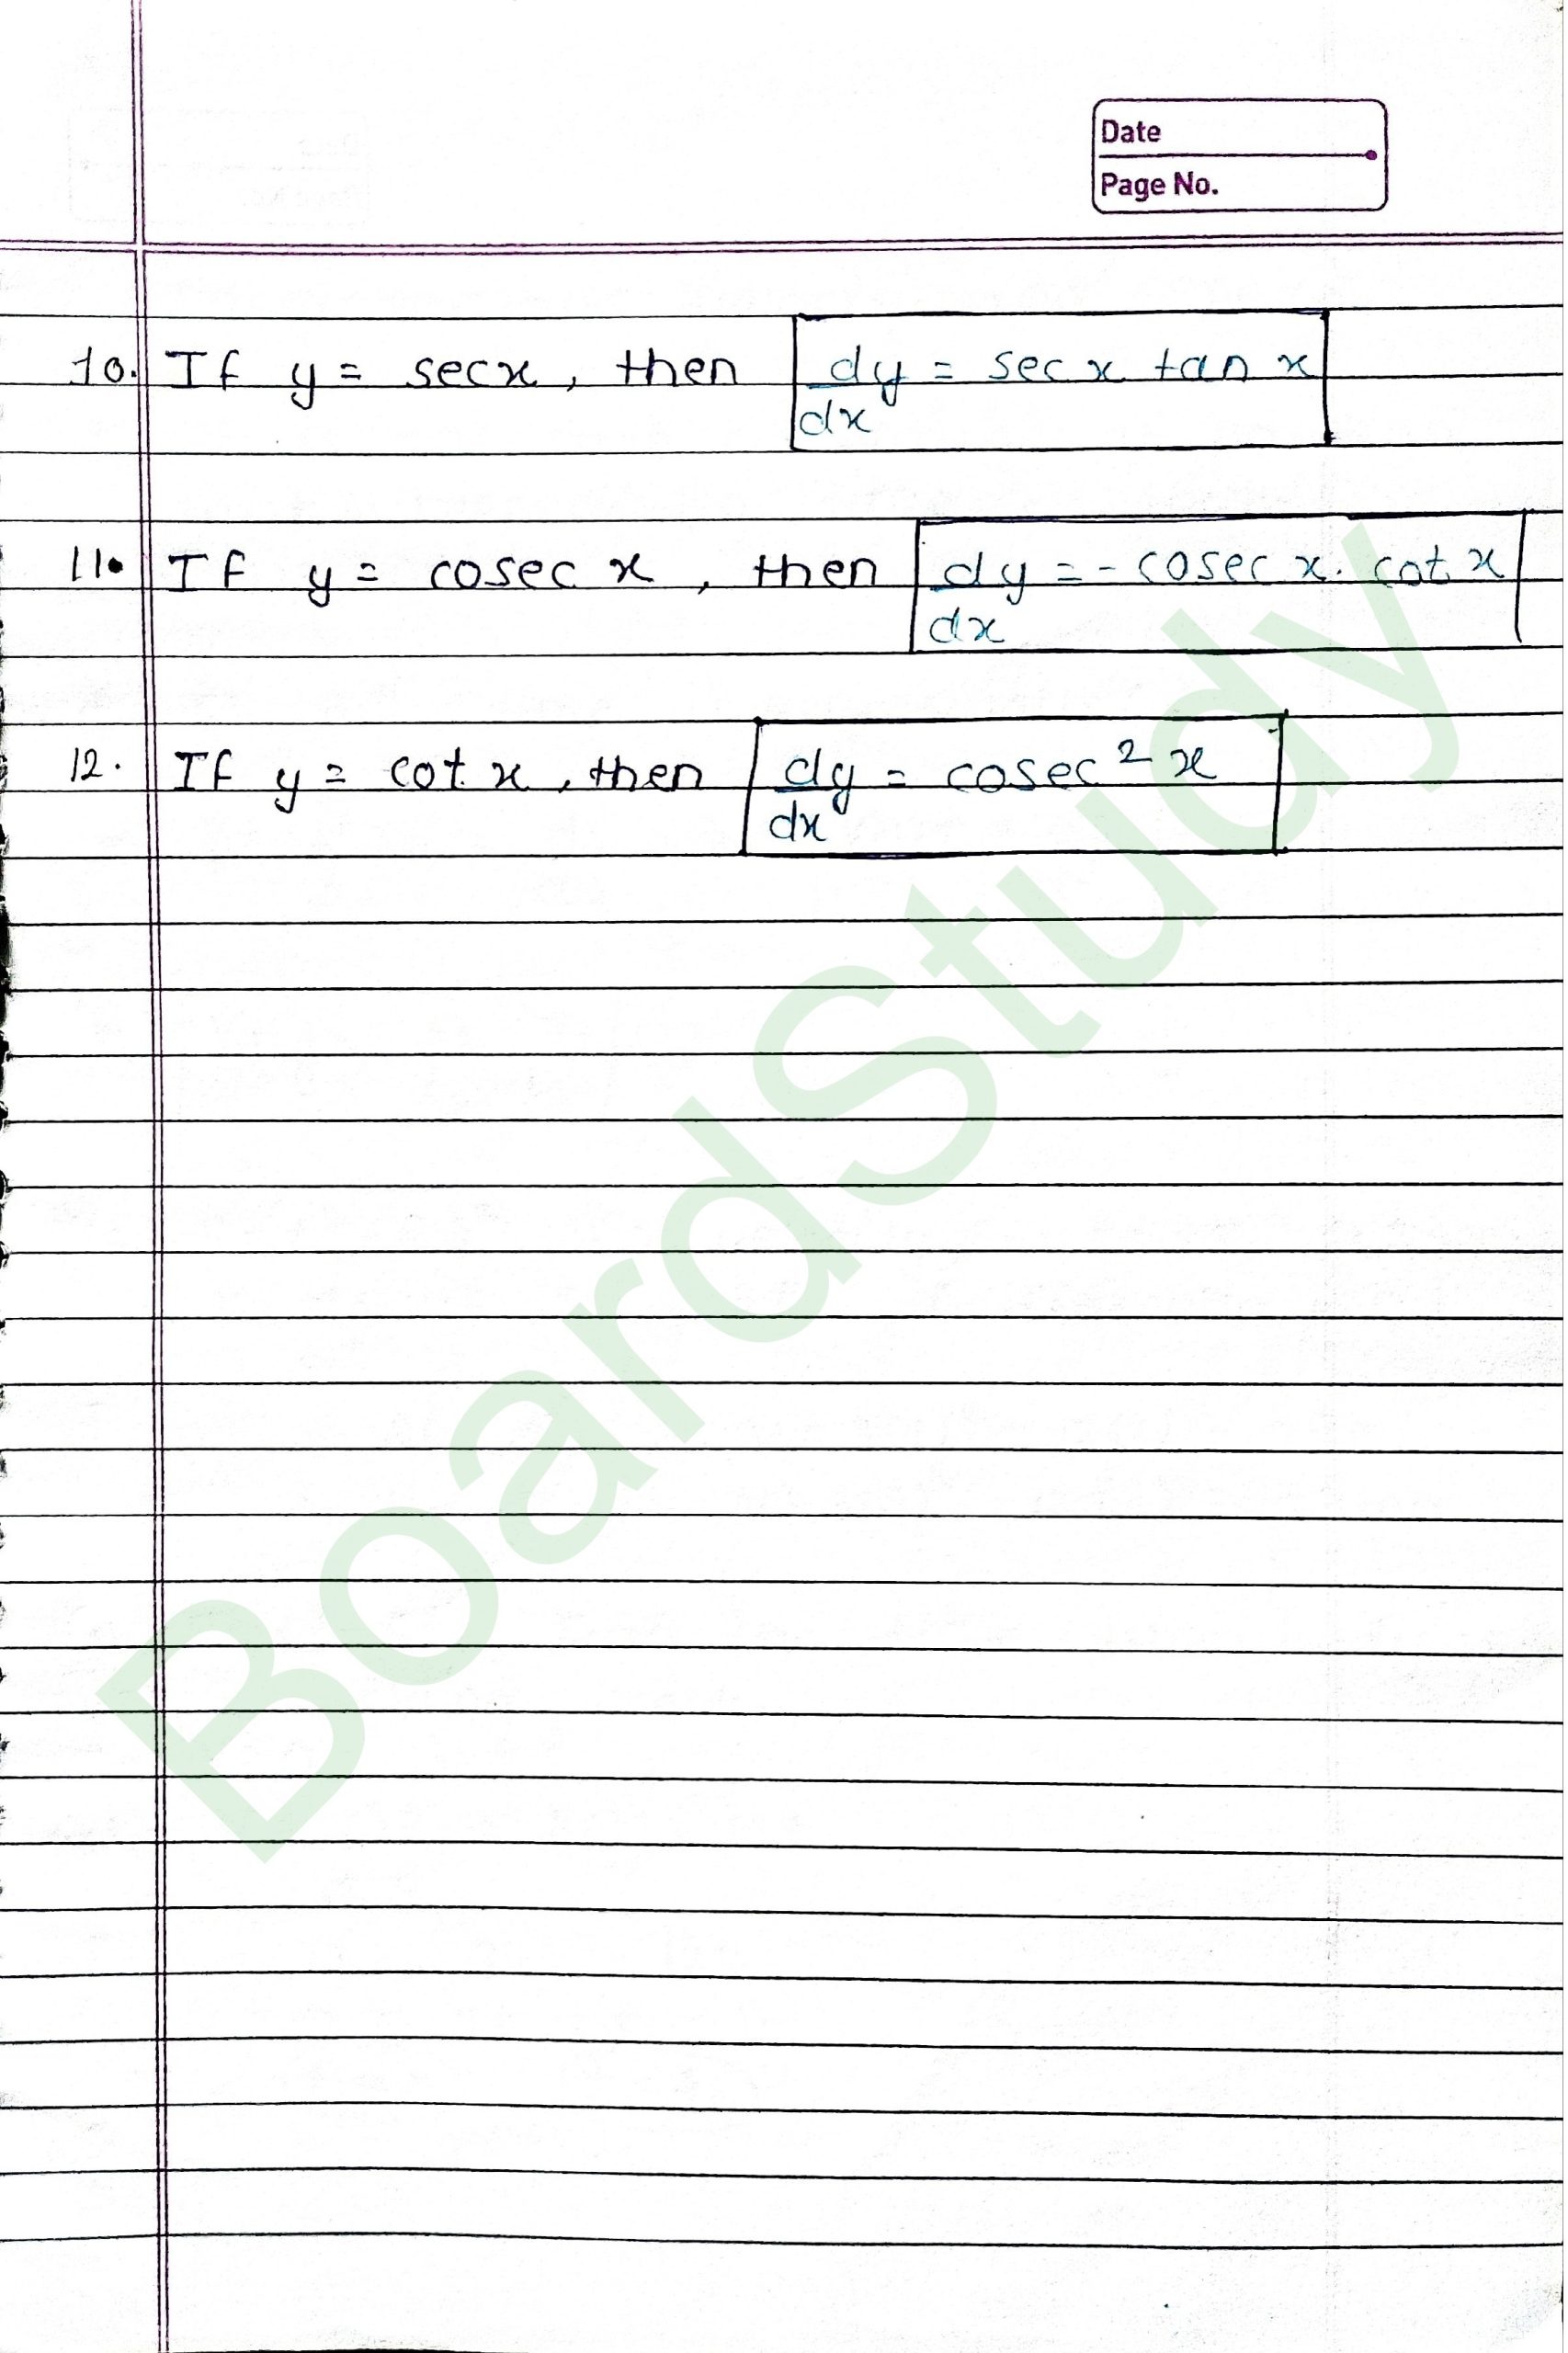 Date
Page No.
10. If y = secx, then dy/dx = sec x tan x
11. If y = cosec x, then dy/dx = - cosec x. cot x
12. If y = cot x, then dy/dx = cosec² x
BoardStudy